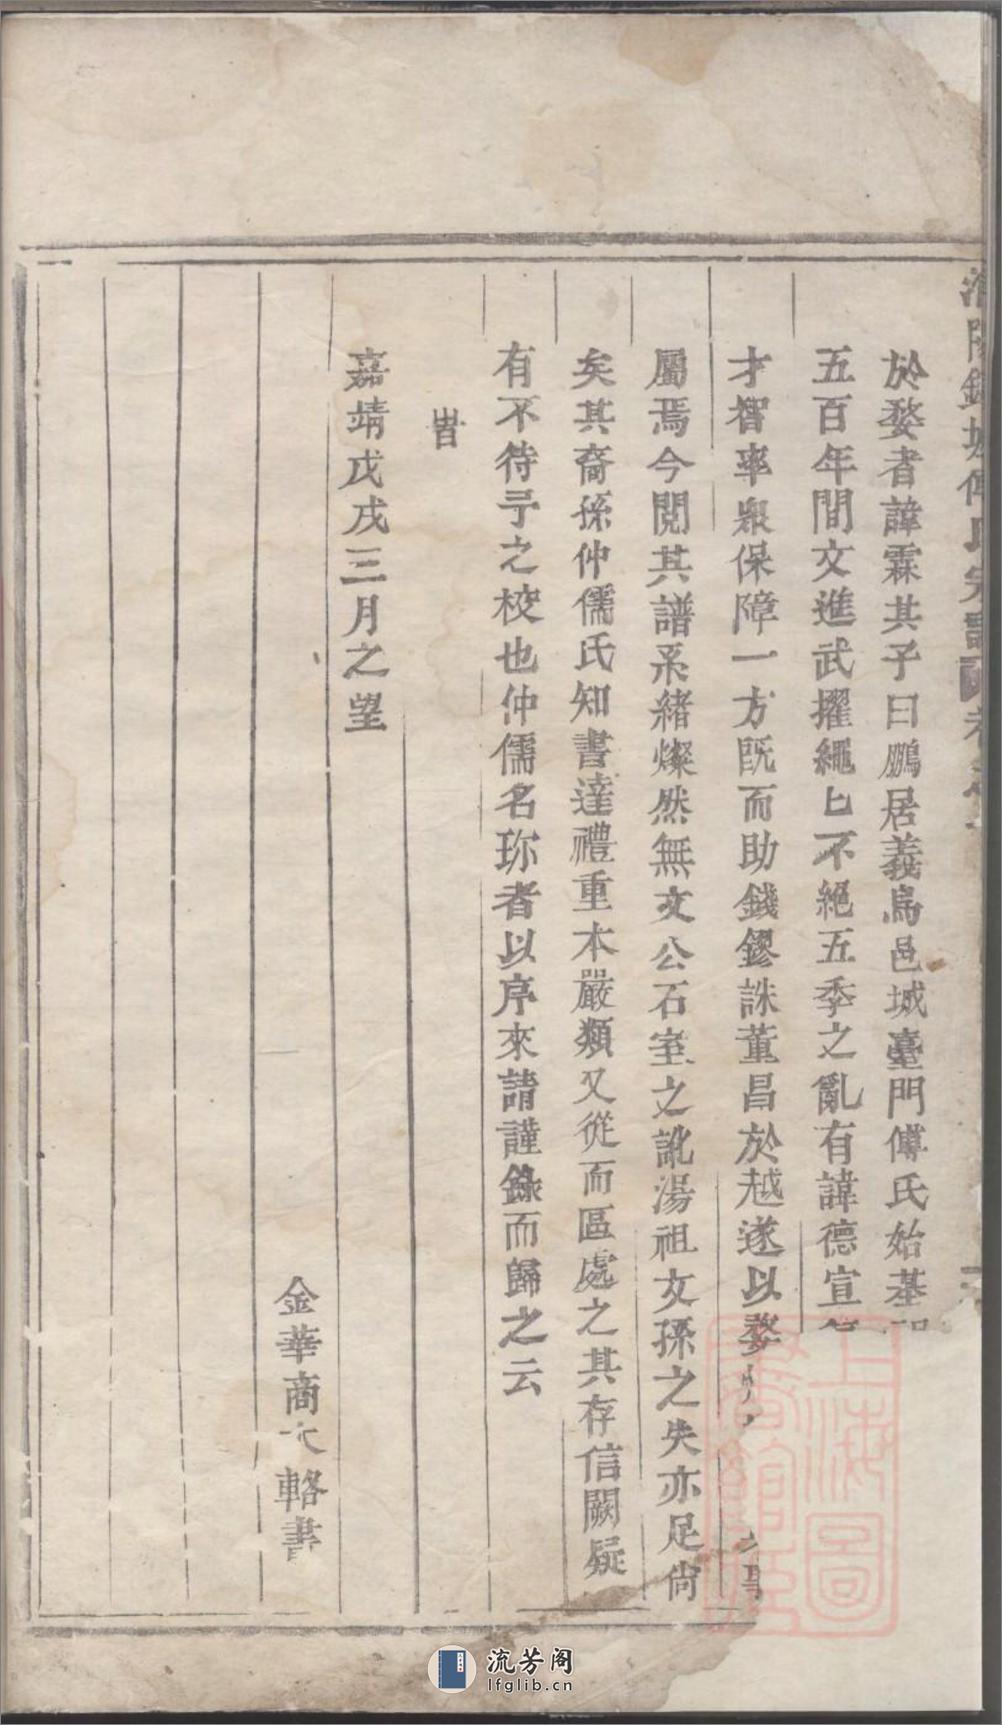 傅氏宗譜
於婺者諱霖其子曰鵬居義烏邑城臺門傅氏始基
五百年間文進武擢繩匕不絕五季之亂有諱德宣
才智率衆保障一方旣而助錢鏐誅董昌於越遂以婺
屬焉今閱其譜系緒燦然無文公石室之訛湯祖文孫之失亦足尙
矣其裔孫仲儒氏知書達禮重本嚴類又從而區處之其存信闕疑
有不待予之校也仲儒名珎者以序來請謹錄而歸之云
旹
嘉靖戊戌三月之望
金華商大輅書
上海圖書館藏
流芳阁
lfglib.cn